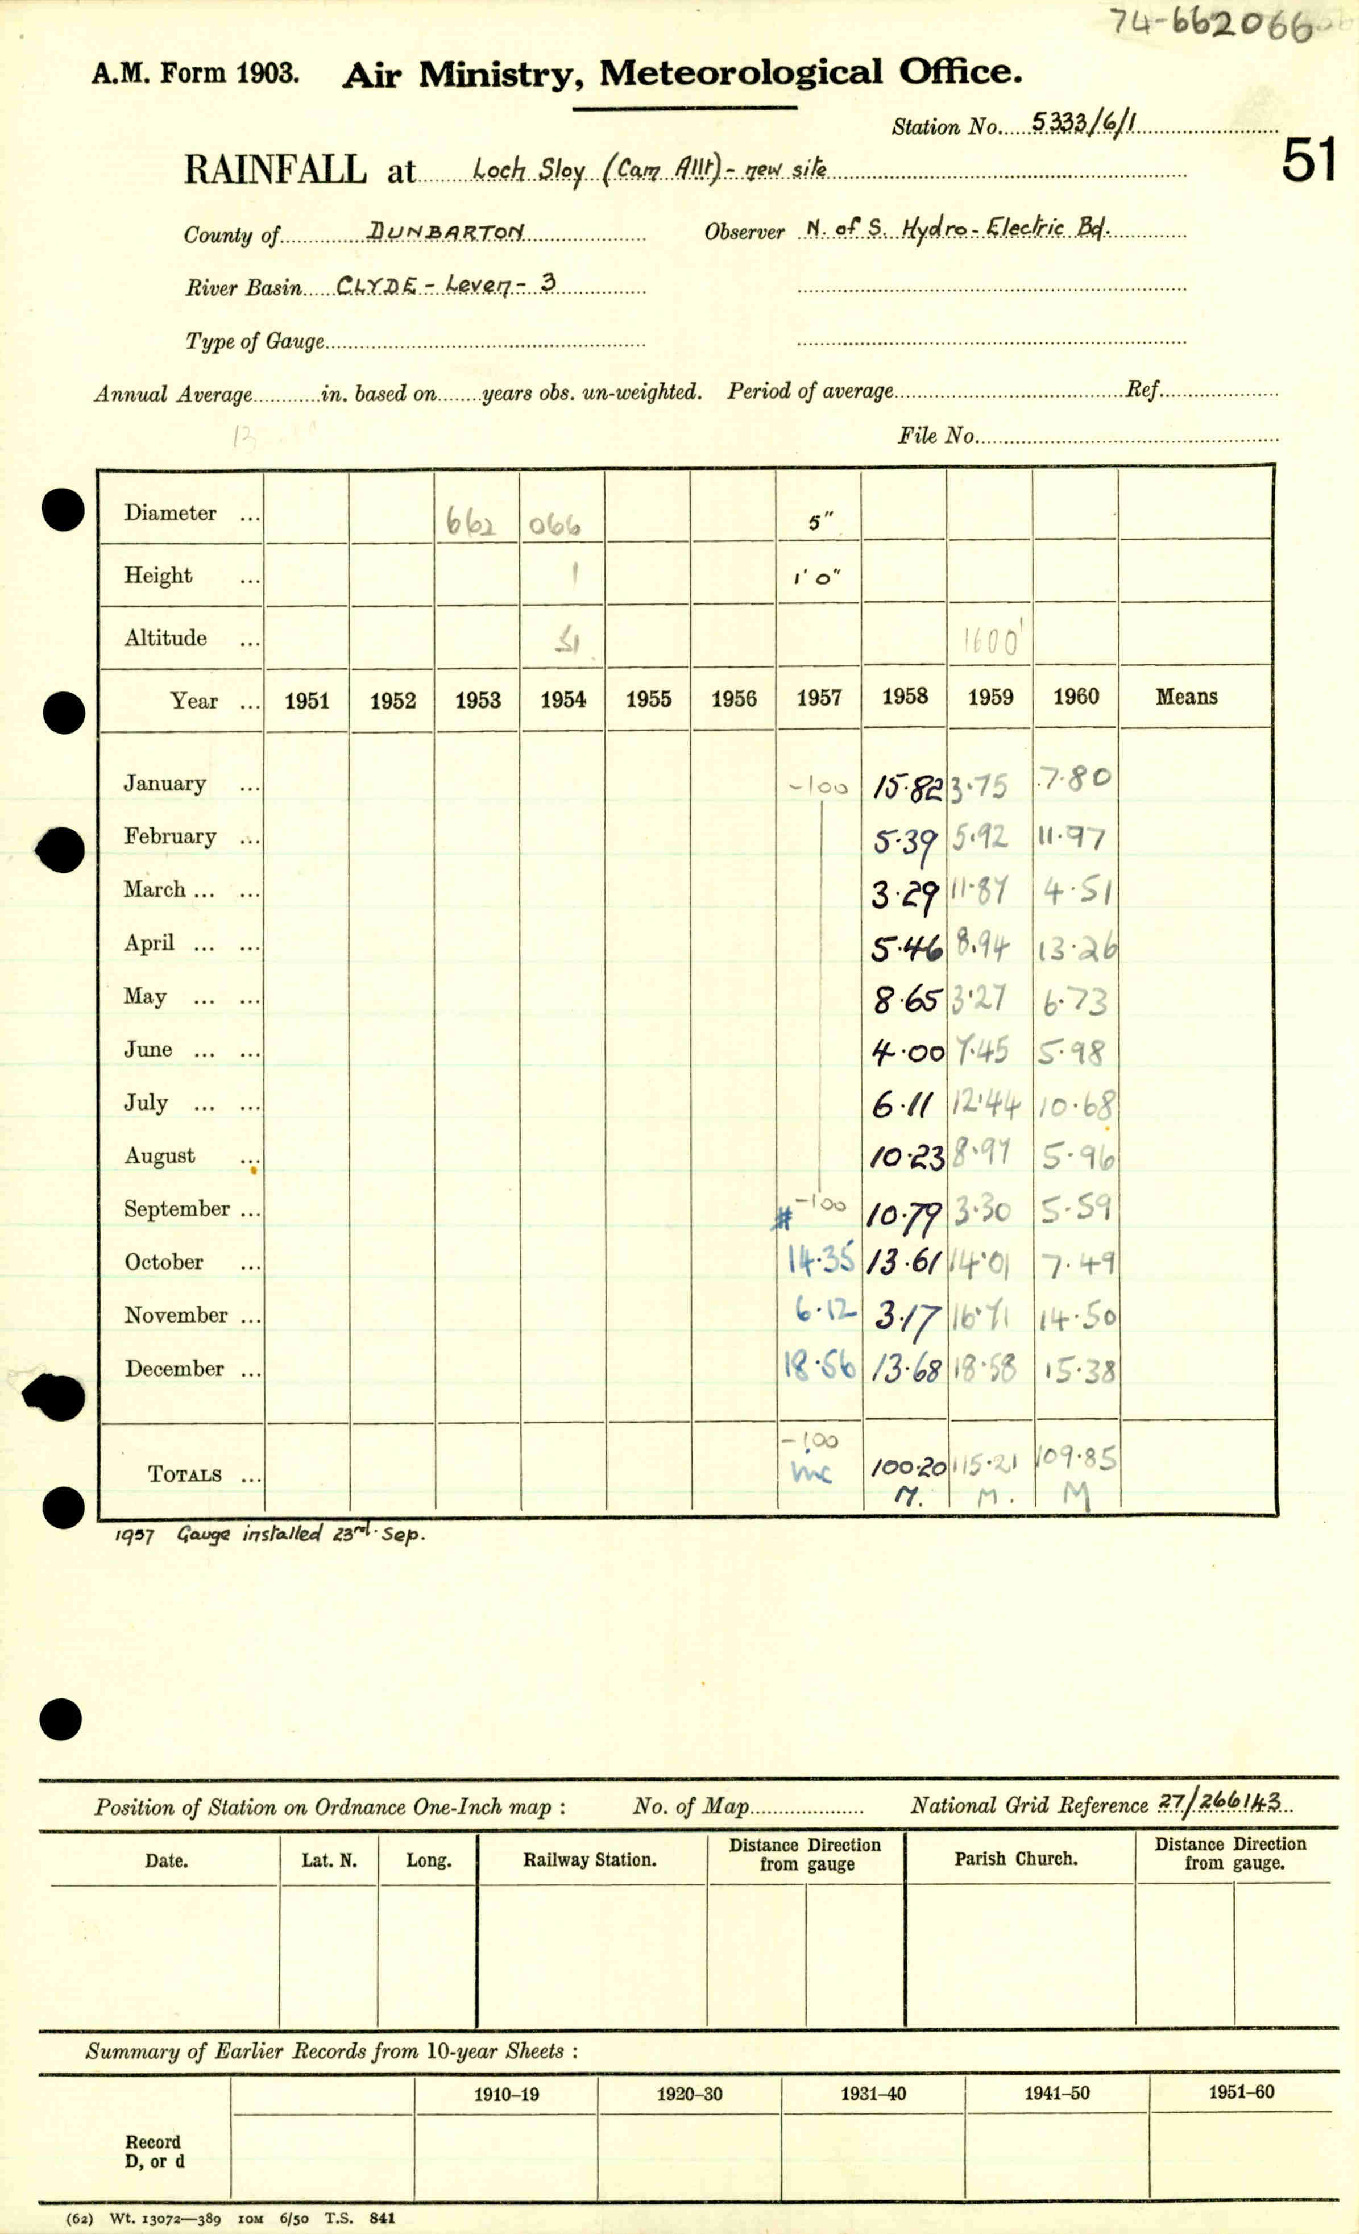 74-662066
A.M. Form 1903. Air Ministry, Meteorological Office.
Station No. 5333/6/1
51
RAINFALL at Loch Sloy (Cam Allt) - new site
County of DUNBARTON Observer N. of S. Hydro-Electric Bd.
River Basin CLYDE - Leven - 3
Type of Gauge
Annual Average in. based on years obs. un-weighted. Period of average Ref.
File No.
Diameter ... 662 066 5"
Height ... 1 1' 0"
Altitude ... 51 1600'
Year ... 1951 1952 1953 1954 1955 1956 1957 1958 1959 1960 Means
January ... -100 15.82 3.75 7.80
February ... 5.39 5.92 11.97
March ... ... 3.29 11.87 4.51
April ... ... 5.46 8.94 13.26
May ... ... 8.65 3.27 6.73
June ... ... 4.00 7.45 5.98
July ... ... 6.11 12.44 10.68
August ... 10.23 8.97 5.96
September ... # -100 10.79 3.30 5.59
October ... 14.35 13.61 14.01 7.49
November ... 6.12 3.17 16.71 14.50
December ... 18.56 13.68 18.58 15.38
-100
TOTALS ... inc 100.20 115.21 109.85
M. M. M
1957 Gauge installed 23rd Sep.
Position of Station on Ordnance One-Inch map : No. of Map National Grid Reference 27/266143
Date. Lat. N. Long. Railway Station. Distance from gauge Direction Parish Church. Distance from gauge. Direction
Summary of Earlier Records from 10-year Sheets :
1910–19 1920–30 1931–40 1941–50 1951–60
Record
D, or d
(62) Wt. 13072—389 10M 6/50 T.S. 841